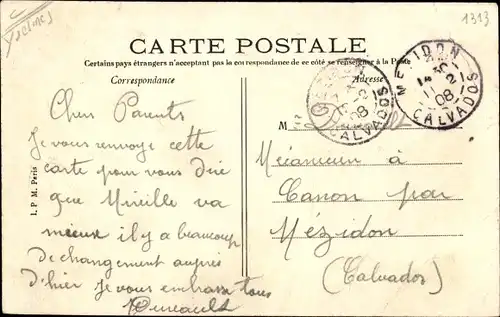 1313
CARTE POSTALE
Certains pays étrangers n'acceptant pas la correspondance de ce côté se renseigner à la Poste
Correspondance
Adresse
Chers Parents
Je vous renvoye cette
carte pour vous dire
que Mireille va
mieux il y a beaucoup
de changement auprès
d'hier Je vous embrasse tous
I. P. M. Paris
M
Mécanicien à
Canon par
Mézidon
(Calvados)
CALVADOS
08
MEZIDON
11 2
08
CALVADOS